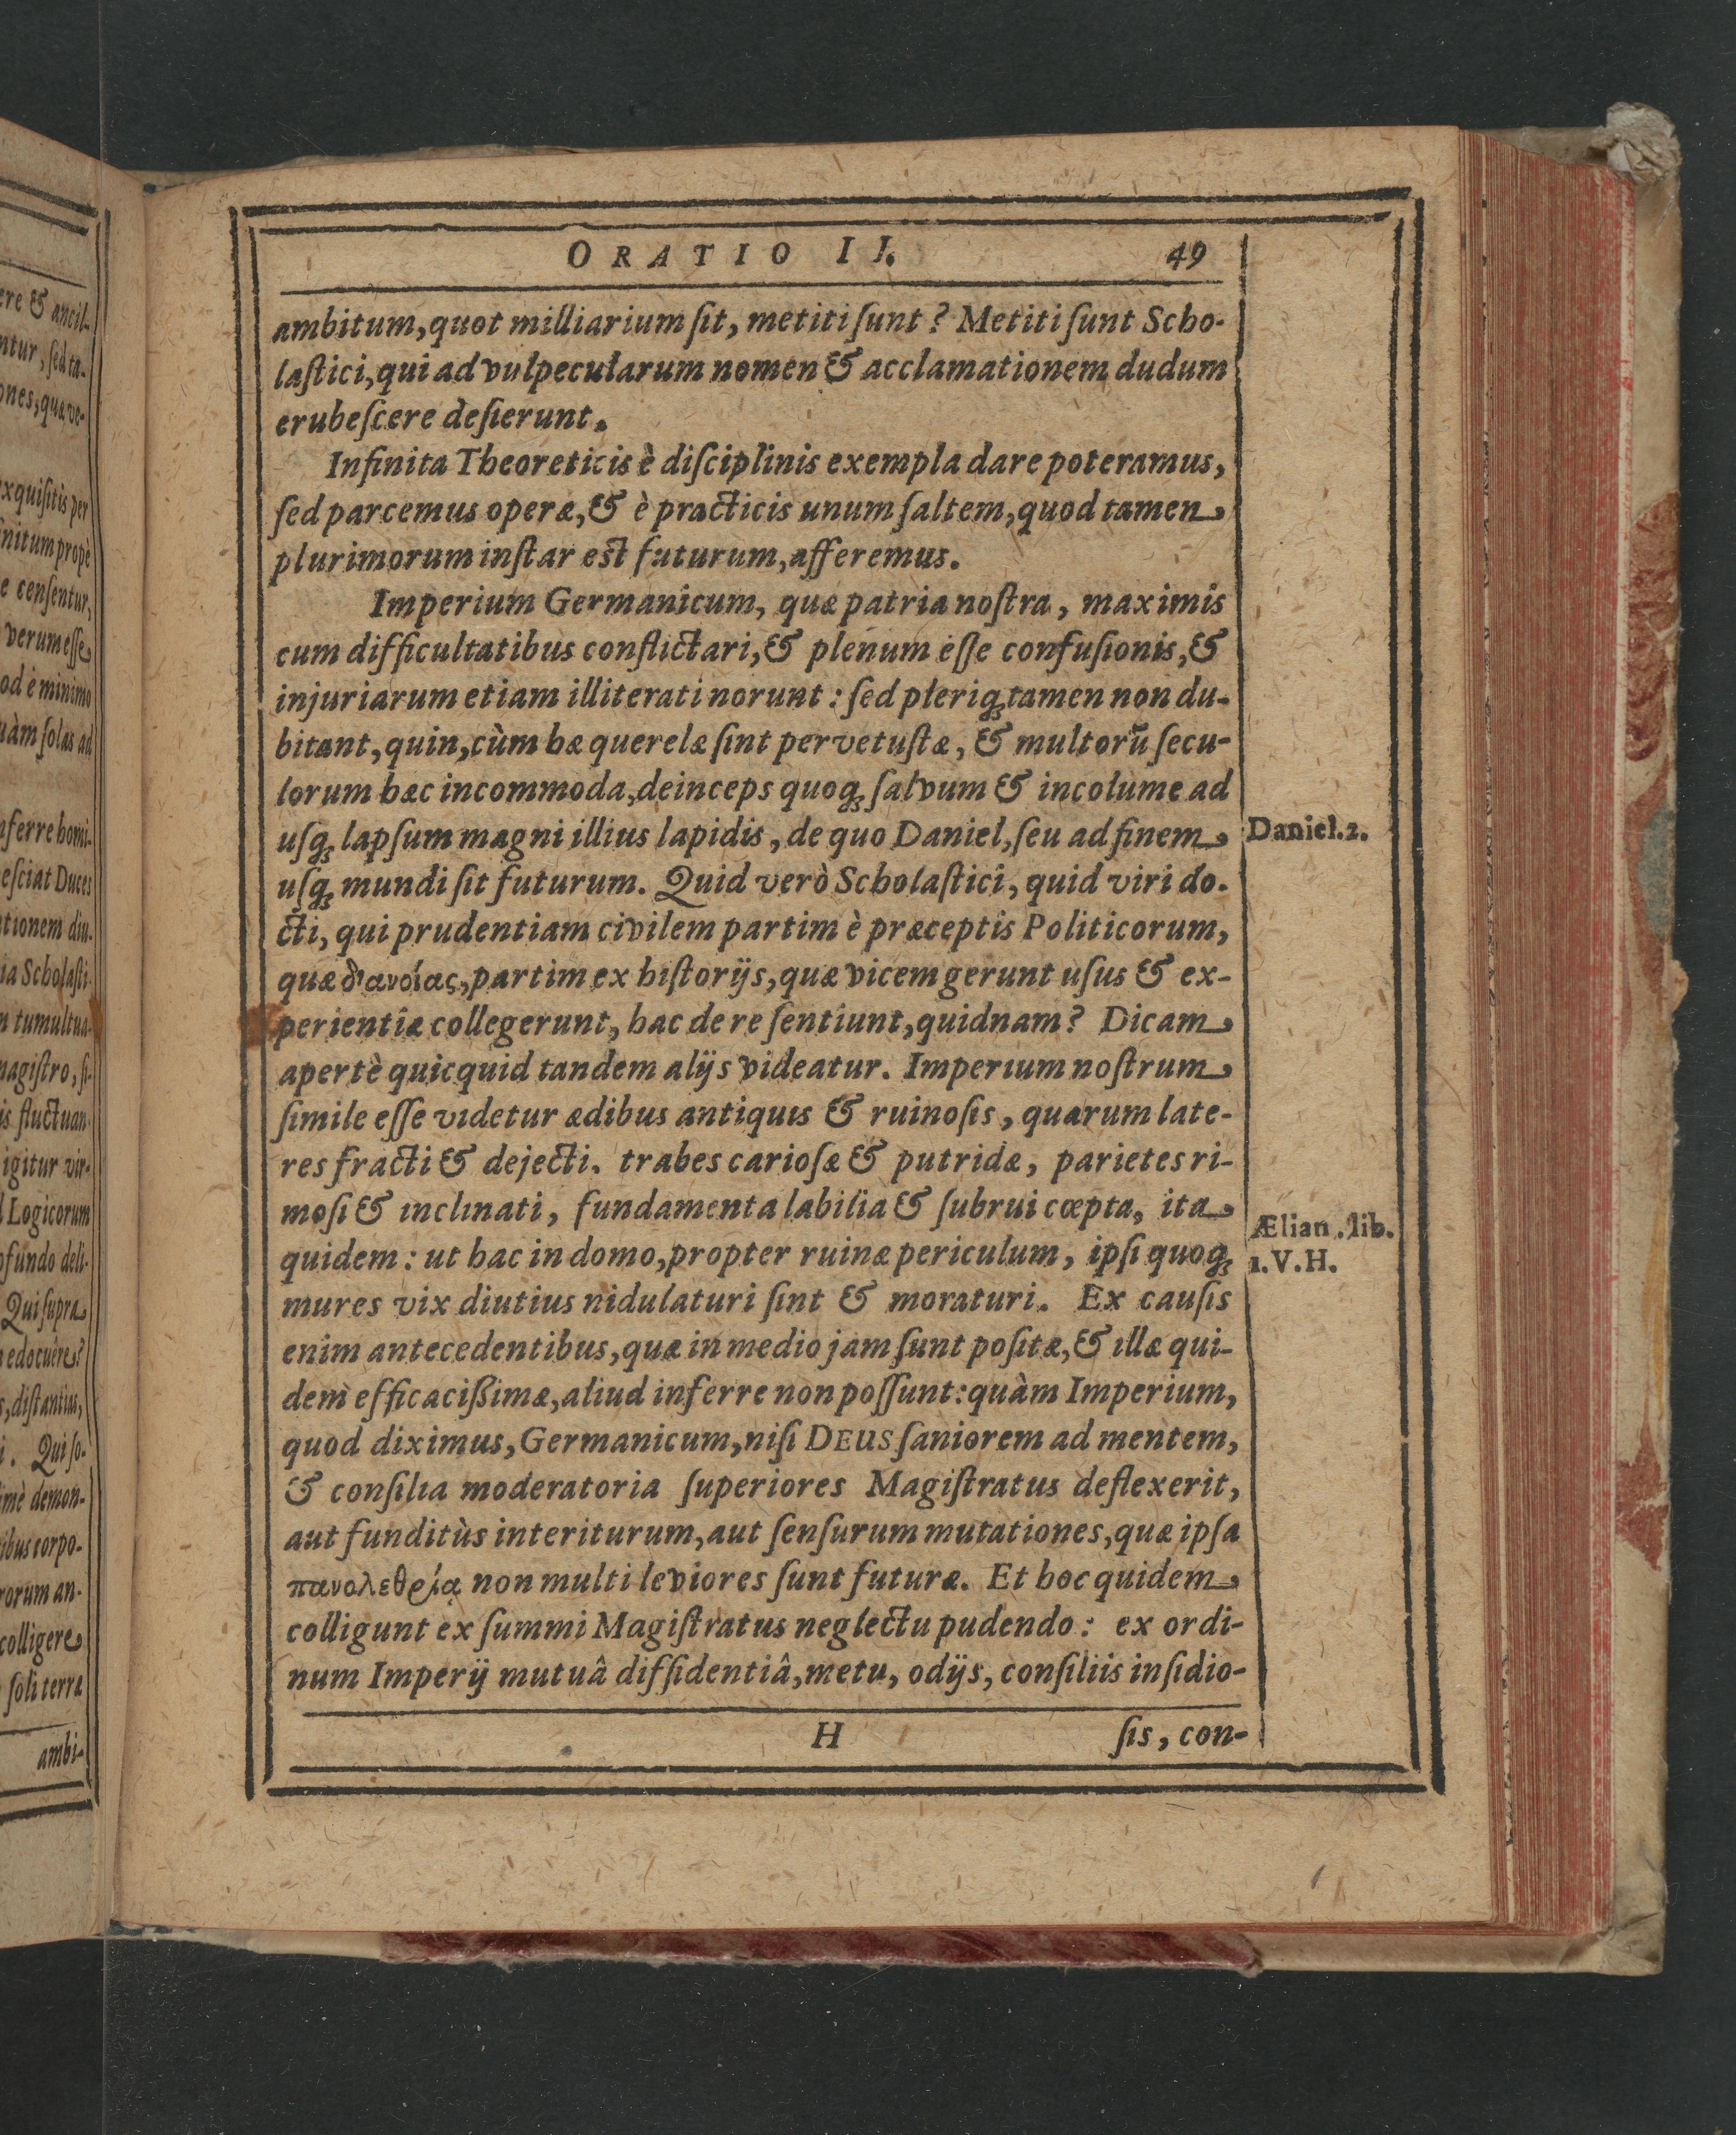 ORATIO II. 49
ambitum, quot milliarium ſit, metiti ſunt? Metiti ſunt Scho-
laſtici, qui ad vulpecularum nomen & acclamationem dudum
erubeſcere deſierunt.
Infinita Theoreticis è diſciplinis exempla dare poteramus,
ſed parcemus operæ, & è practicis unum ſaltem, quod tamen
plurimorum inſtar eſt futurum, afferemus.
Imperium Germanicum, quæ patria noſtra, maximis
cum difficultatibus conflictari, & plenum eſſe confuſionis, &
injuriarum etiam illiterati norunt: ſed pleriq; tamen non du-
bitant, quin, cùm hæ querelæ ſint pervetuſtæ, & multorū ſecu-
lorum hæc incommoda, deinceps quoq; ſalvum & incolume ad
uſq; lapſum magni illius lapidis, de quo Daniel, ſeu ad finem
Daniel. 2.
uſq; mundi ſit futurum. Quid verò Scholaſtici, quid viri do-
cti, qui prudentiam civilem partim è præceptis Politicorum,
quæ διανοίας, partim ex hiſtorijs, quæ vicem gerunt uſus & ex-
perientiæ collegerunt, hac de re ſentiunt, quidnam? Dicam
apertè quicquid tandem alijs videatur. Imperium noſtrum
ſimile eſſe videtur ædibus antiquis & ruinoſis, quarum late-
res fracti & dejecti. trabes carioſæ & putridæ, parietes ri-
moſi & inclinati, fundamenta labilia & ſubrui cœpta, ita
Ælian. lib.
quidem: ut hac in domo, propter ruinæ periculum, ipſi quoq;
1. V. H.
mures vix diutius nidulaturi ſint & moraturi. Ex cauſis
enim antecedentibus, quæ in medio jam ſunt poſitæ, & illæ qui-
dem efficacißimæ, aliud inferre non poſſunt: quàm Imperium,
quod diximus, Germanicum, niſi DEUS ſaniorem ad mentem,
& conſilia moderatoria ſuperiores Magiſtratus deflexerit,
aut funditùs interiturum, aut ſenſurum mutationes, quæ ipſa
πανολεθρίᾳ non multi leviores ſunt futuræ. Et hoc quidem
colligunt ex ſummi Magiſtratus neglectu pudendo: ex ordi-
num Imperij mutuâ diffidentiâ, metu, odijs, conſiliis inſidio-
H ſis, con-